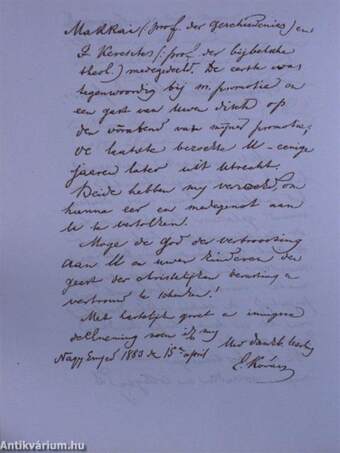 Makkai (prof. der Geschiedenis) en
J. Keresztes (prof. der bijbelsche
theol.) medegedeeld. De eerste was
tegenwoordig bij m. promotie en
een gast van Uwen disch op
den voravend van mijner promotie;
de laatste bezocht U eenige
jaaren later uit Utrecht.
Beide hebben my verzocht, om
hunne eer en medegenot aan
U te vertolken.
Moge de God der vertroosting
aan U en uwen kinderen den
geest der christelijken berusting en
vertrouwd te schenken!
Met hartelijk groet en innigen
deelneming noem ik my
Uw dankb. leerling
Nagy Enyed 1883 de 15n april
E. Kovács
Antikvárium.hu